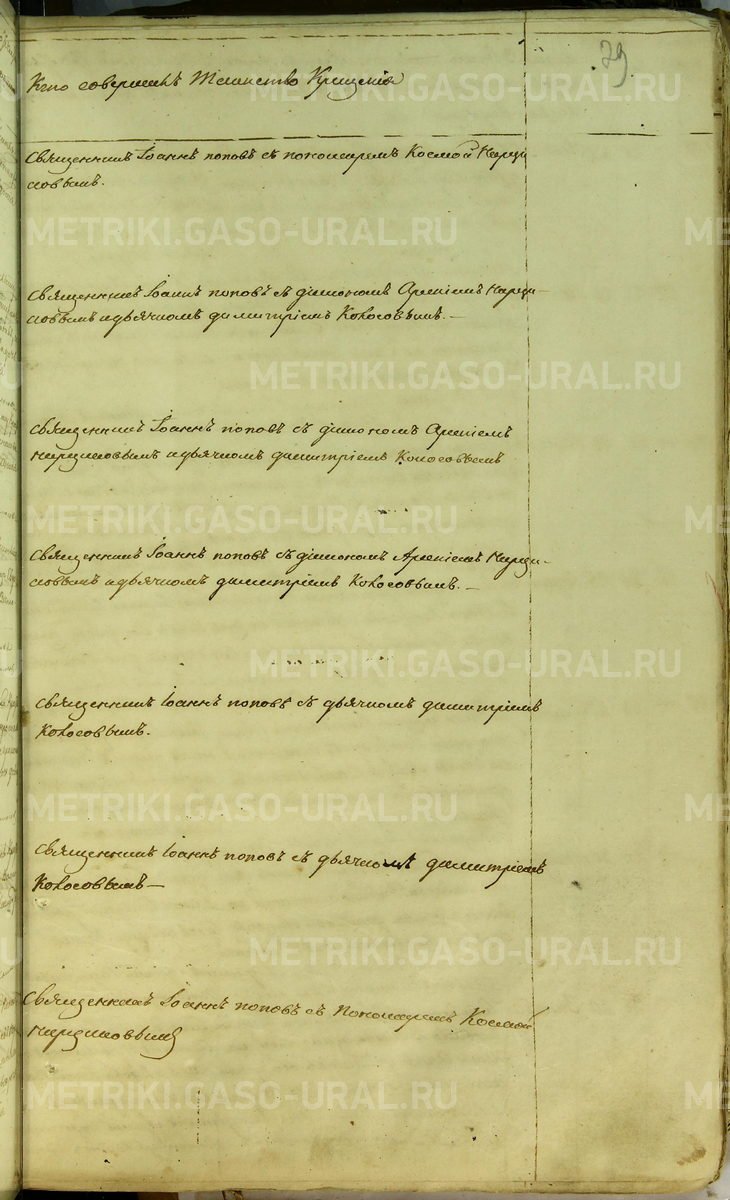 29
Кто совершилъ Таинство Крещенія
Священникъ Іоаннъ поповъ съ пономаремъ Космой Нарци
совымъ.
Священникъ Іоаннъ поповъ съ діакономъ Арсеніемъ Нарци-
совымъ и дьячкомъ димитріемъ Колосовымъ.—
священникъ Іоаннъ поповъ съ діакономъ Арсеніемъ
нарцисовымъ и дьячкомъ димитріемъ Колосовымъ
священникъ Іоаннъ поповъ съ діакономъ Арсеніемъ Нарци-
совымъ и дьячкомъ димитріемъ Колосовымъ.—
священникъ Іоаннъ поповъ съ дьячкомъ димитріемъ
Колосовымъ.
священникъ Іоаннъ поповъ съ дьячкомъ димитріемъ
Колосовымъ—
Священникъ Іоаннъ поповъ съ Пономаремъ Космой
нарцисовымъ
METRIKI.GASO-URAL.RU